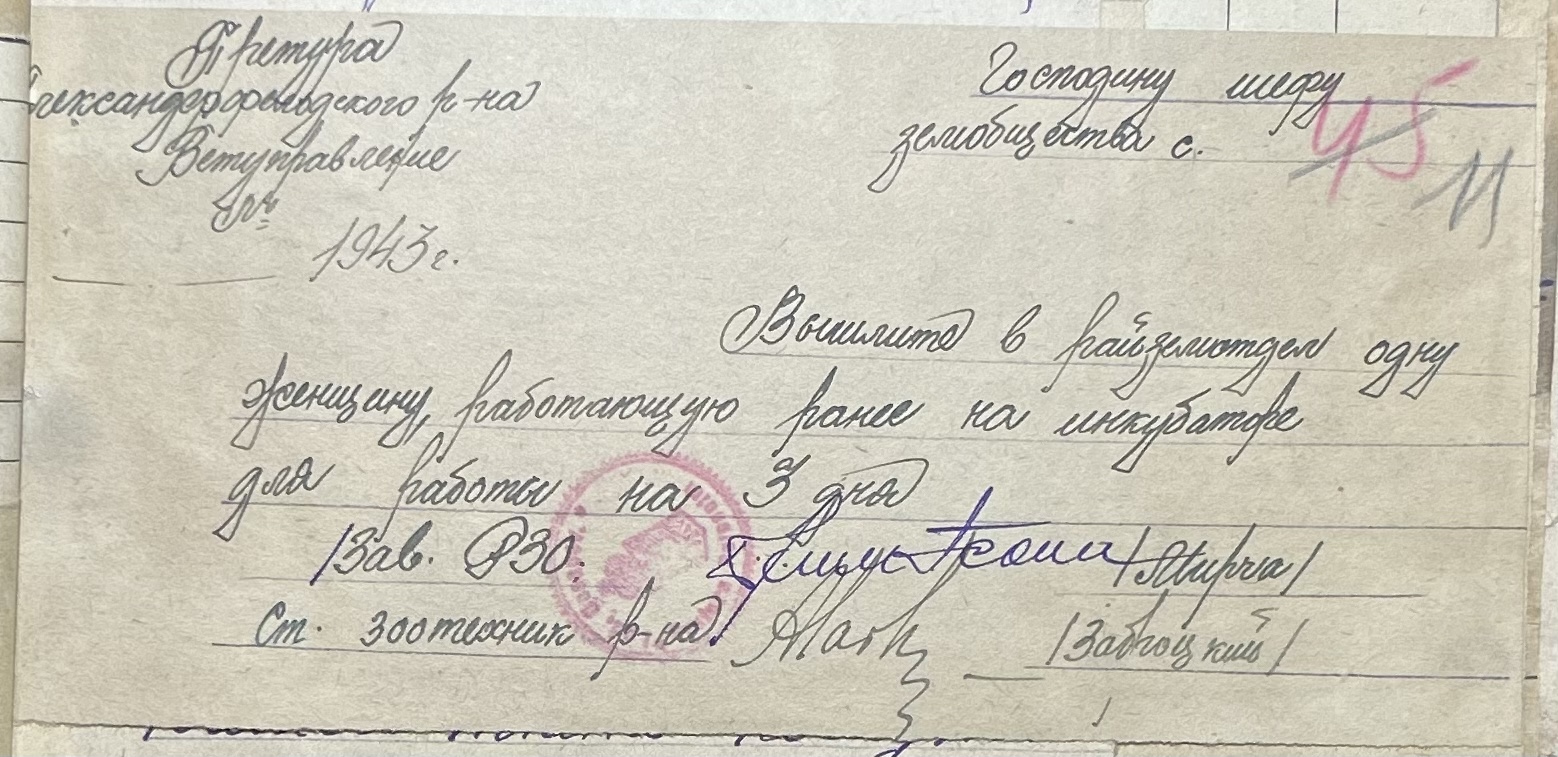 Претура
Александерфельдского р-на
Ветуправление
№
1943 г.
Господину шефу
земобщества с.
45
11
Вышлите в райземотдел одну
женщину, работающую ранее на инкубаторе
для работы на 3 дня
/Зав. РЗО.
/Мирча/
Ст. зоотехник р-на
/Заброцкий/